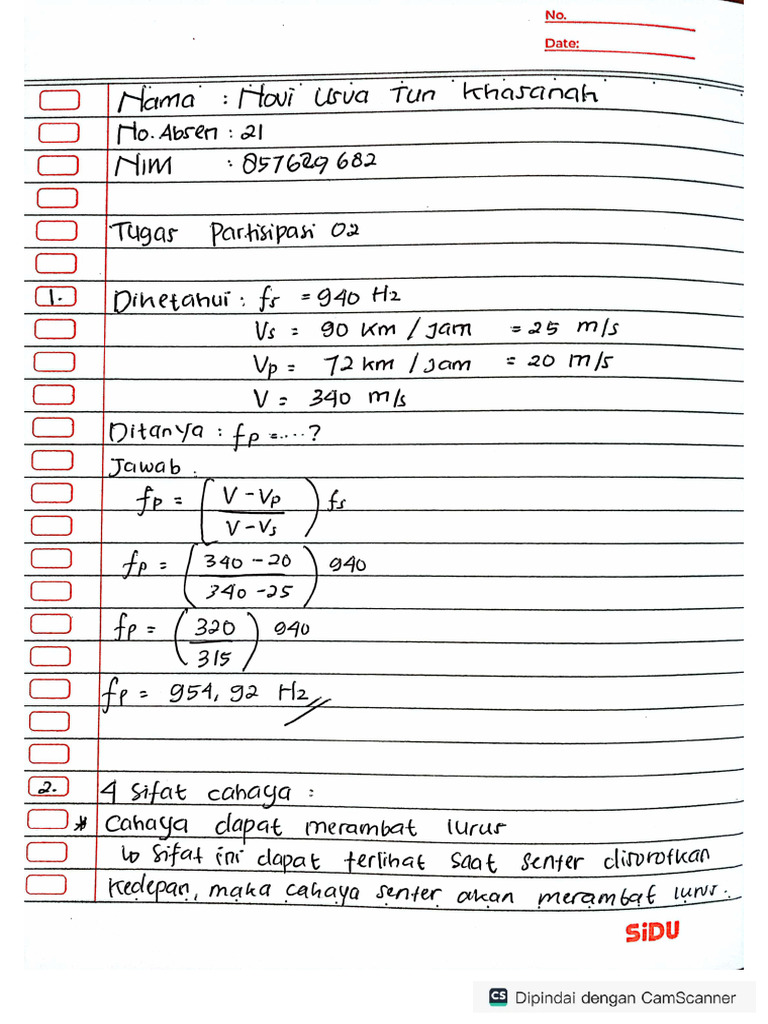 No.
Date:
Nama : Novi Usva Tun Khasanah
No. Absen : 21
NIM : 857629682
Tugas Partisipasi 02
1. Diketahui : fs = 940 Hz
Vs = 90 km / jam = 25 m/s
Vp = 72 km / jam = 20 m/s
V = 340 m/s
Ditanya : fp = ....?
Jawab :
fp = ( V - Vp / V - Vs ) fs
fp = ( 340 - 20 / 340 - 25 ) 940
fp = ( 320 / 315 ) 940
fp = 954,92 Hz //
2. 4 sifat cahaya :
* Cahaya dapat merambat lurus
↳ Sifat ini dapat terlihat saat senter disorotkan
kedepan, maka cahaya senter akan merambat lurus.
SiDU
CS Dipindai dengan CamScanner